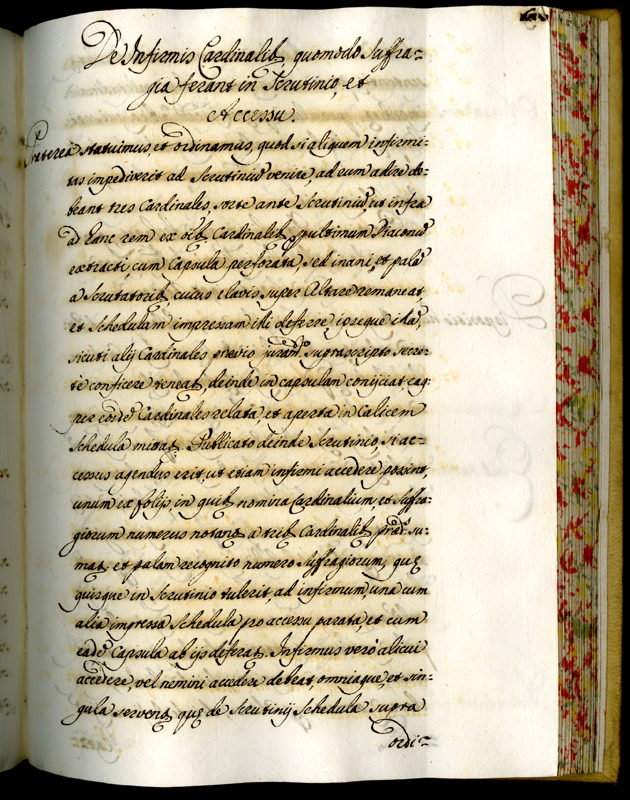 De Infirmis Cardinalib, quomodo Suffra=
gia ferant in Scrutinio, et
Accessu.
Præterea statuimus, et ordinamus, quod si aliquem infirmi=
tas impediverit ad Scrutiniũ venire, ad eum adire de=
beant tres Cardinales, sorte ante Scrutiniũ, ut infra
ad hanc rem ex oib Cardinalib, pultimum Diaconũ
extracti, cum Capsula perforata, sed inani, et palã
a Scrutatorib, cuius clavis super Altare remaneat,
et Schedulam impressam illi deferre, ipseque ita,
sicuti alij Cardinales previo juram.to suprascripto secre=
tè conficere teneat, deinde in capsulam conijciat, eaq;
per eosd Cardinales relata, et aperta in Calicem
Schedula mittat. Publicato deinde Scrutinio, si ac=
cessus agendus erit, ut etiam infirmi accedere possint,
unum ex folijs, in quib nomina Cardinalium, et Suffra=
giorum numerus notant a trib Cardinalib præd.s su=
mat, et palam recognito numero Suffragiorum, quę
quisque in Scrutinio tulerit, ad infirmum, una cum
alia impressa Schedula pro accessu parata, et cum
eadẽ Capsula ab ijs deferat. Infirmus verò alicui
accedere, vel nemini accedere debeat, omniaque, et sin=
gula servent, quę de Scrutinij Schedula supra
ordi=